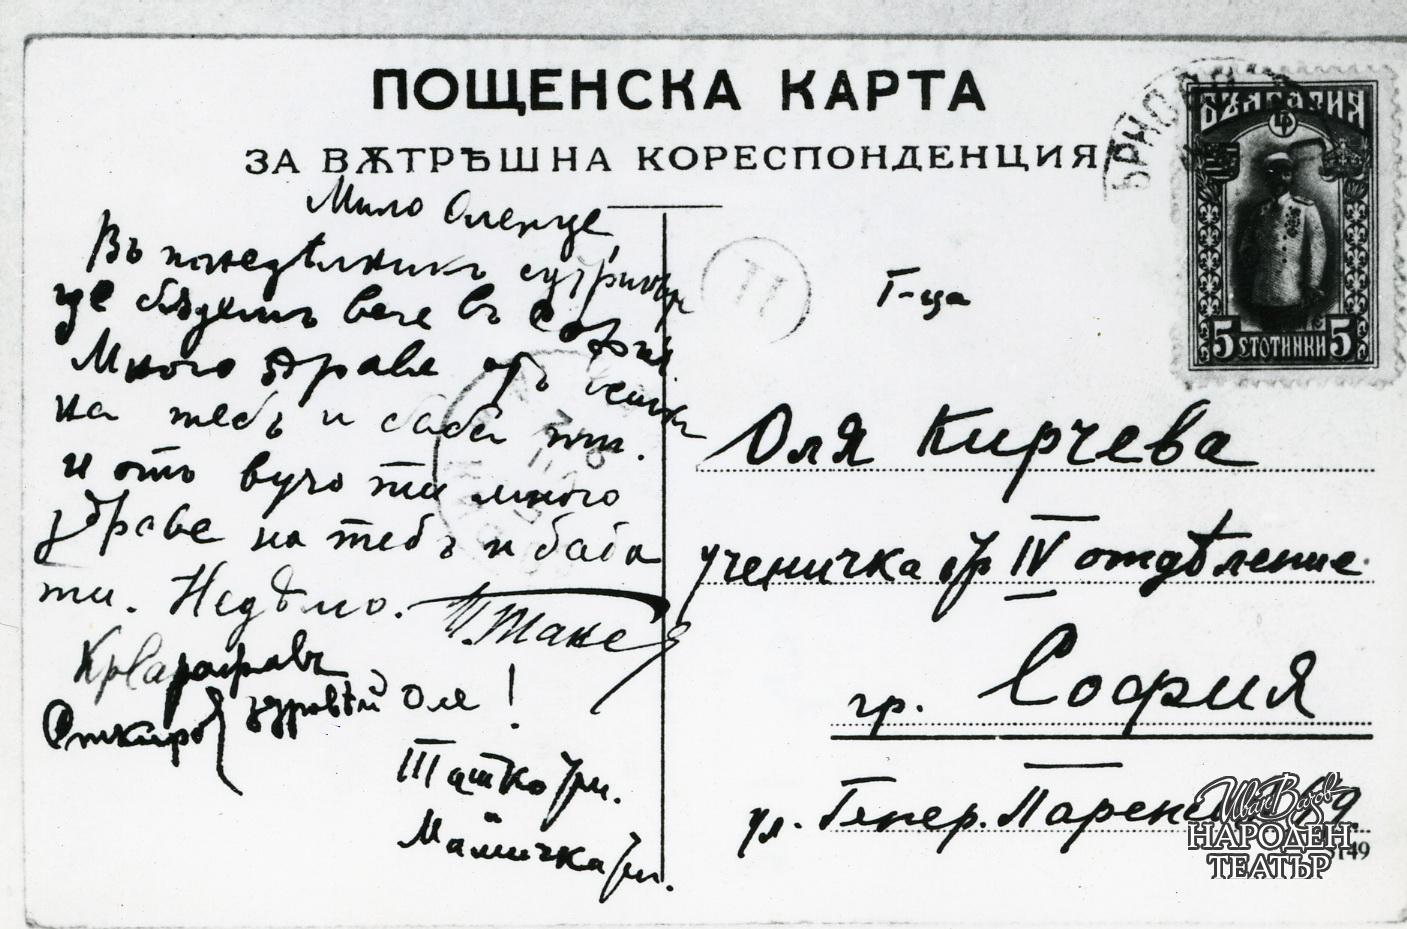 ПОЩЕНСКА КАРТА
ЗА ВѪТРѢШНА КОРЕСПОНДЕНЦИЯ
БЪЛГАРИЯ
5 СТОТИНКИ 5
Мило Оленце,
Въ понедѣлникъ сутриньта
ще бѫдемъ вече въ София
Много здраве отъ всички
на тебъ и баба ти.
И отъ вучо ти много
здраве на тебъ и баба
ти. Недѣлю.
здравѣй Оля!
Ташко
Мамичка
Г-ца
Оля Кирчева
ученичка IV отдѣление
гр. София
ул. Генер. Паренсовъ
Иван Вазов
НАРОДЕН
ТЕАТЪР